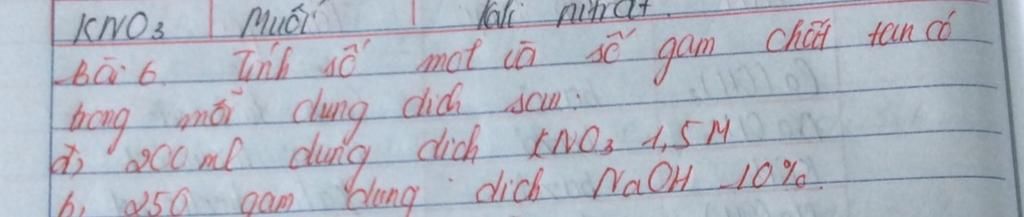 KNO3 Muối Kali nitrat
Bài 6 Tính số mol và số gam chất tan có
trong mỗi dung dịch sau:
a, 200 ml dung dịch KNO3 1,5 M
b, 250 gam dung dịch NaOH 10%.